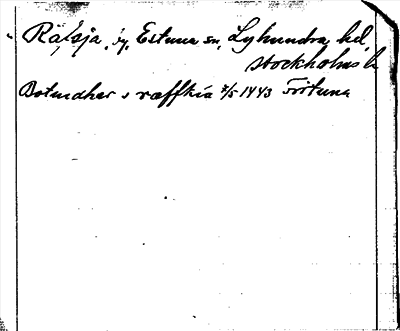 Räfsja, by, Estuna sn, Lyhundra hd,
Stockholms l.
Botmdher s ræffkia 2/5 1443 Fortuna